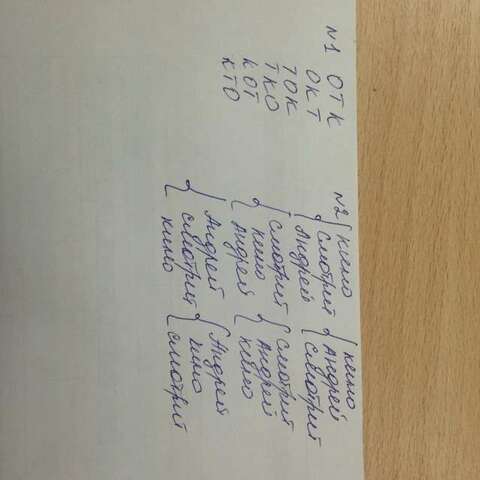 №1 ОТК
ОКТ
ТОК
ТКО
КОТ
КТО
№2 кино
смотрит
Андрей
кино
Андрей
смотрит
смотрит
кино
Андрей
смотрит
Андрей
кино
Андрей
смотрит
кино
Андрей
кино
смотрит